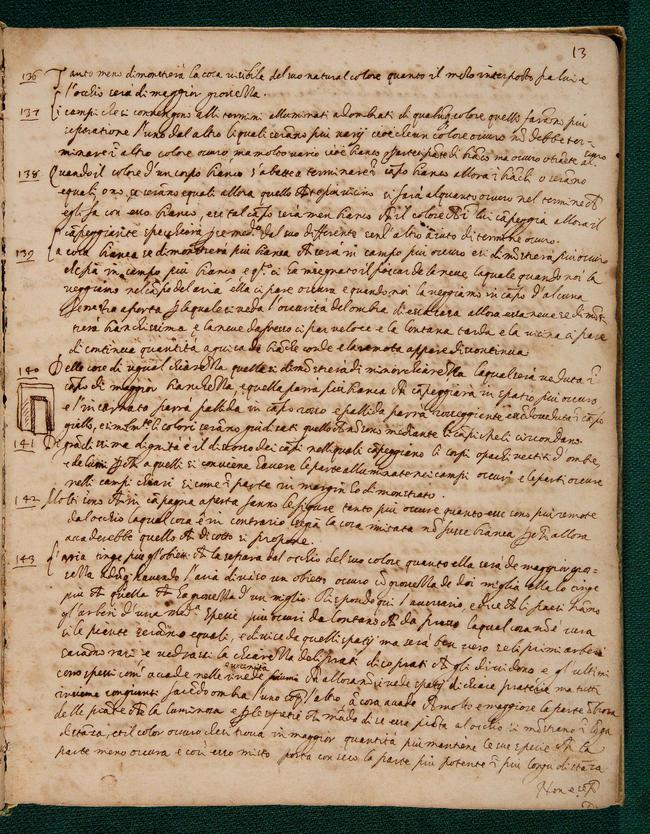 13
136 Tanto meno dimostrerà la cosa visibile del suo natural colore quanto il mezo interposto fra lui e
l'ochio serà di maggior grossezza.
137 Li campi che si convengono alli termini alluminati adombrati di qualunq colore quello faranno più
separatione l'uno dal altro li quali serano più varij cioè che un colore oscuro nō debbe ter-
minare ī altro colore oscuro ma molto vario cioè bianco
138 Quando il colore d'un corpo bianco s'abatte a terminare ī campo bianco allora i bianchi o serano
equali o no, se serano equali allora quello più vicino si farà alquanto oscuro nel termine
egli fa con esso bianco, e se tal campo serà men bianco il colore ī lui campeggia allora il
campeggiante spiccherà per se med.º dal suo differente senz'altro aiuto di termine oscuro.
139 La cosa bianca se dimostrerà più bianca serà in campo più oscuro e si dimostrerà più oscura
che sia in campo più bianco e questo ci ha insegnato il fioccar de la neve laquale quando noi la
veggiamo nel campo del aria ella ci pare oscura e quando noi la veggiamo in campo d'alcuna
fenestra aperta per laquale si veda l'oscurità del ombra di essa casa allora essa neve se dimos-
trerà bianchissima e la neve dapresso ci par veloce e la lontana tarda e la vicina ci pare
di continua quantità a guisa de bianche corde e la remota ci appare discontinuata
140 Delle cose di ugual chiarezza quella si dimostrerà di minor chiarezza laqual serà veduta ī
campo di maggior bianchezza e quella parrà più bianca campeggiarà in spatio più oscuro
e l'incarnata parrà pallida in campo rosso e pallida parrà rosseggiante essendo veduta ī campo
giallo, e similmente li colori serano giudicati quello non sono mediante li campi che li circondano
141 Di grandissima dignità è il discorso dei campi nelli quali campeggiano li corpi opachi vestiti d'ombre,
e de lumi a quelli si conviene havere le parte alluminate nei campi oscuri e le parti oscure
nelli campi chiari si come ī parte in margine ho dimostrato.
142 Molti sono in campagna aperta fanno le figure tanto più oscure quanto esse sono più remote
dal ochio laqual cosa è in contrario la cosa imitata nō fusse bianca allora
accaderebbe quello di sotto si propone.
143 L'aria tinge più gl'obietti separa dal ochio del suo colore quanto ella serà de maggior gros-
sezza havendo l'aria diviso un obietto oscuro grossezza de doi miglia ella lo tinge
più quella ha grossezza d'un miglio. Rispondo qui l'aversario, e dice li paesi hanno
gl'arberi d'una med.ª spetie più oscuri da lontano da presso laqual cosa nō è vera
se le piante serano equali, e divise da equali spatij ma serà ben vero se li primi arberi
serano rari e vedrassi la chiarezza deli prati gli dividono e gl'ultimi
sono spessi com' accade nelle rive e vicinità de fiumi allora nō si vede spatij di chiare praterie ma tutti
insieme congiunti facendo ombra l'uno l'altro acora accade molto è maggiore la parte ombrosa
delle piante la luminosa e per le spetie manda di se essa pianta al ochio si mostrano ī lunga
distāza, et il color oscuro che si trova in maggior quantità più mantene le sue spetie la
parte meno oscura e così esso misto porta con seco la parte più potente ī più longa distāza
Non è